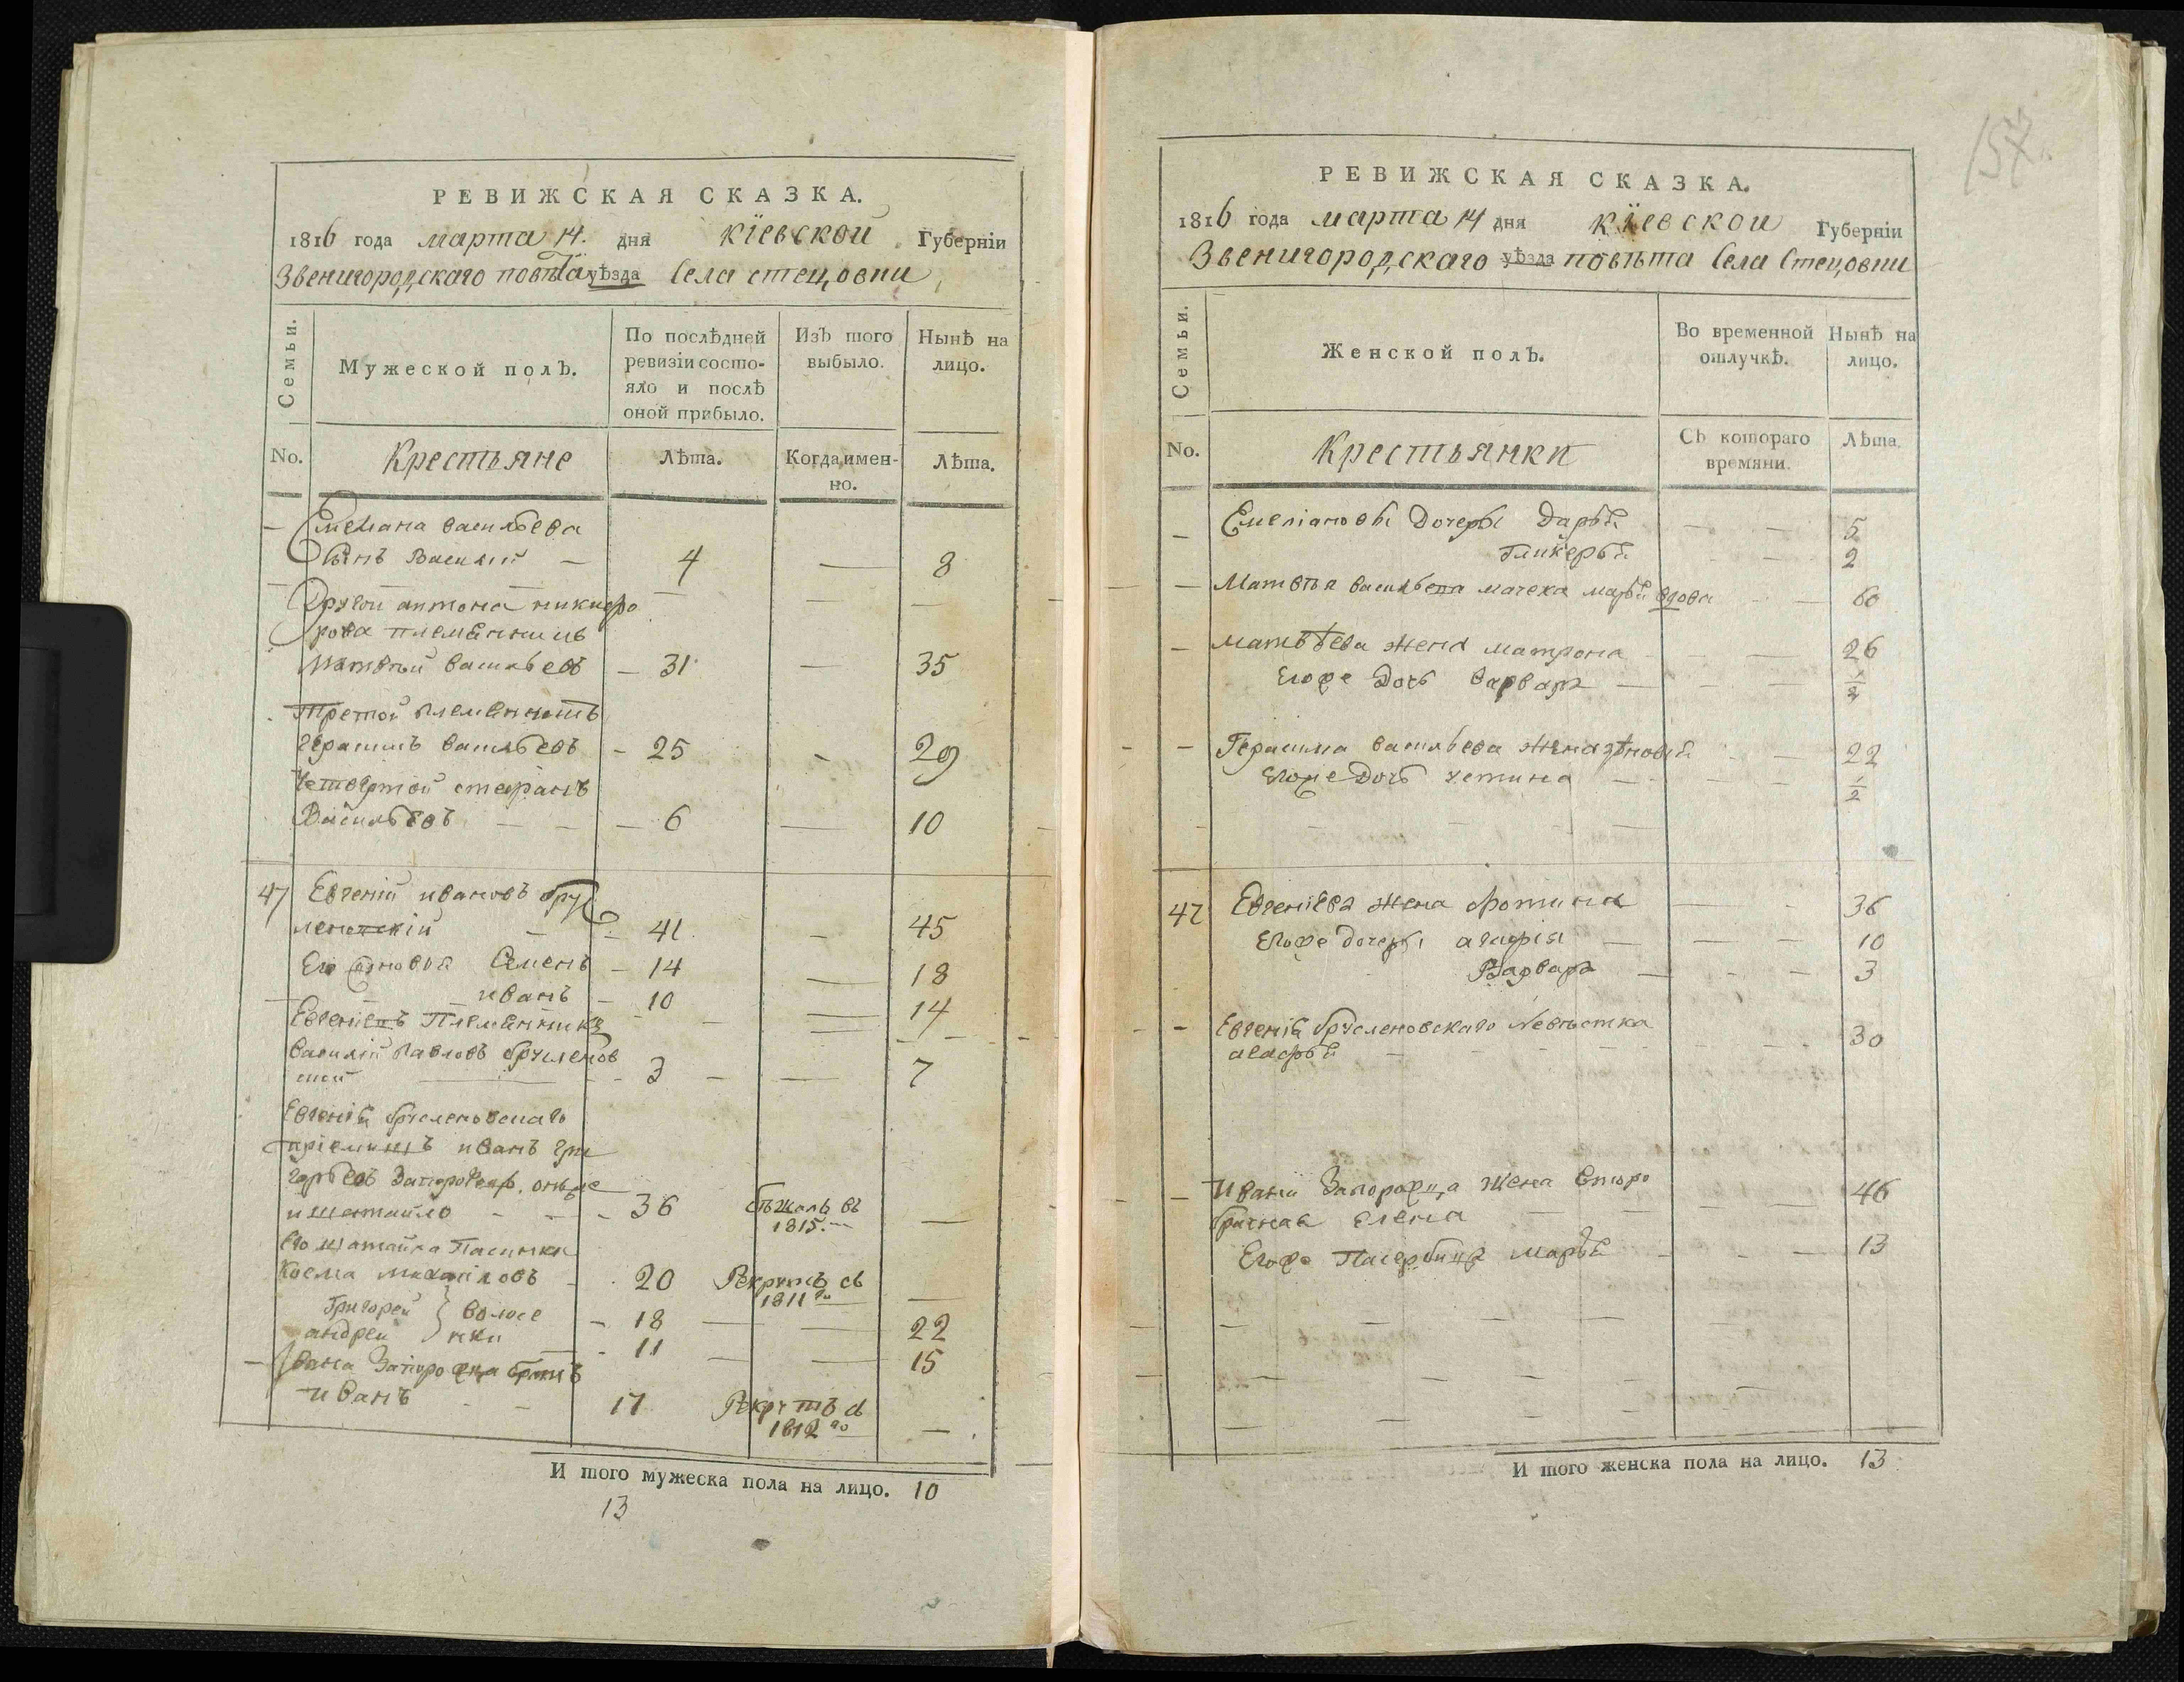 РЕВИЖСКАЯ СКАЗКА.
1816 года марта 14. дня кїевской Губерніи
Звенигородскаго повѣта уѣзда Села стецовки
Семьи.
Мужеской полъ.
По послѣдней ревизіи состояло и послѣ оной прибыло.
Изъ того выбыло.
Нынѣ на лицо.
No.
Крестьяне
Лѣта.
Когда имен-но.
Лѣта.
Емелiана васильева
Сынъ Василий — 4 — 8
Другой антона никифо
рова племянникъ
Матвѣй васильевъ — 31 — 35
Третой племянникъ
Герасимъ васильевъ — 25 - 29
Четвертой стефанъ
Васильевъ — — — 6 — 10
47 Евгеній ивановъ
- 41 - 45
Его сыновья Семенъ — 14 — 18
иванъ — 10 — 14
Евгеніевъ Племянникъ
Василій Павловъ бруленов
ской — 3 — — 7
Евгенія бруленовскаго
пріемышъ иванъ гри
горьевъ Запорожецъ. онъже
и шатайло - - - 36 бѣжалъ въ
1815. —
его шатайла Пасинки
Косма михайловъ - 20 Рекрутъ съ
1811 го —
Григорей } волосе — 18 — — 22
андрей } нки - 11 — — 15
— Ивана Запорожца братъ
иванъ - - 17 Рекрутъ съ
1812 го — .
И того мужеска пола на лицо. 10
13
157.
РЕВИЖСКАЯ СКАЗКА.
1816 года марта 14 дня кїевской Губерніи
Звенигородскаго уѣзда повѣта Села Стецовки
Семьи.
Женской полъ.
Во временной отлучкѣ.
Нынѣ на лицо.
No.
Крестьянки
Съ котораго времяни.
Лѣта.
— Емеліановы Дочеры Дарья — — 5
Гликерья — 2
— Матвѣя васильева мачеха марья вдова — 60
— матвѣева жена матрона — 26
Егоже дочь варвара — - — 1/2
- — Герасима васильева жена зѣновья - — 22
Егоже Дочь — - — 1/2
47 Евгеніева жена фотина — - 36
Егоже дочеры агафія — — — 10
Варвара — - — 3
- Евгенія бруленовскаго Невѣстка
агафья — 30
— Ивана Запорожца жена второ
брачная елена — — — 46
Егоже Пасербица марья - - — 13
И того женска пола на лицо. 13